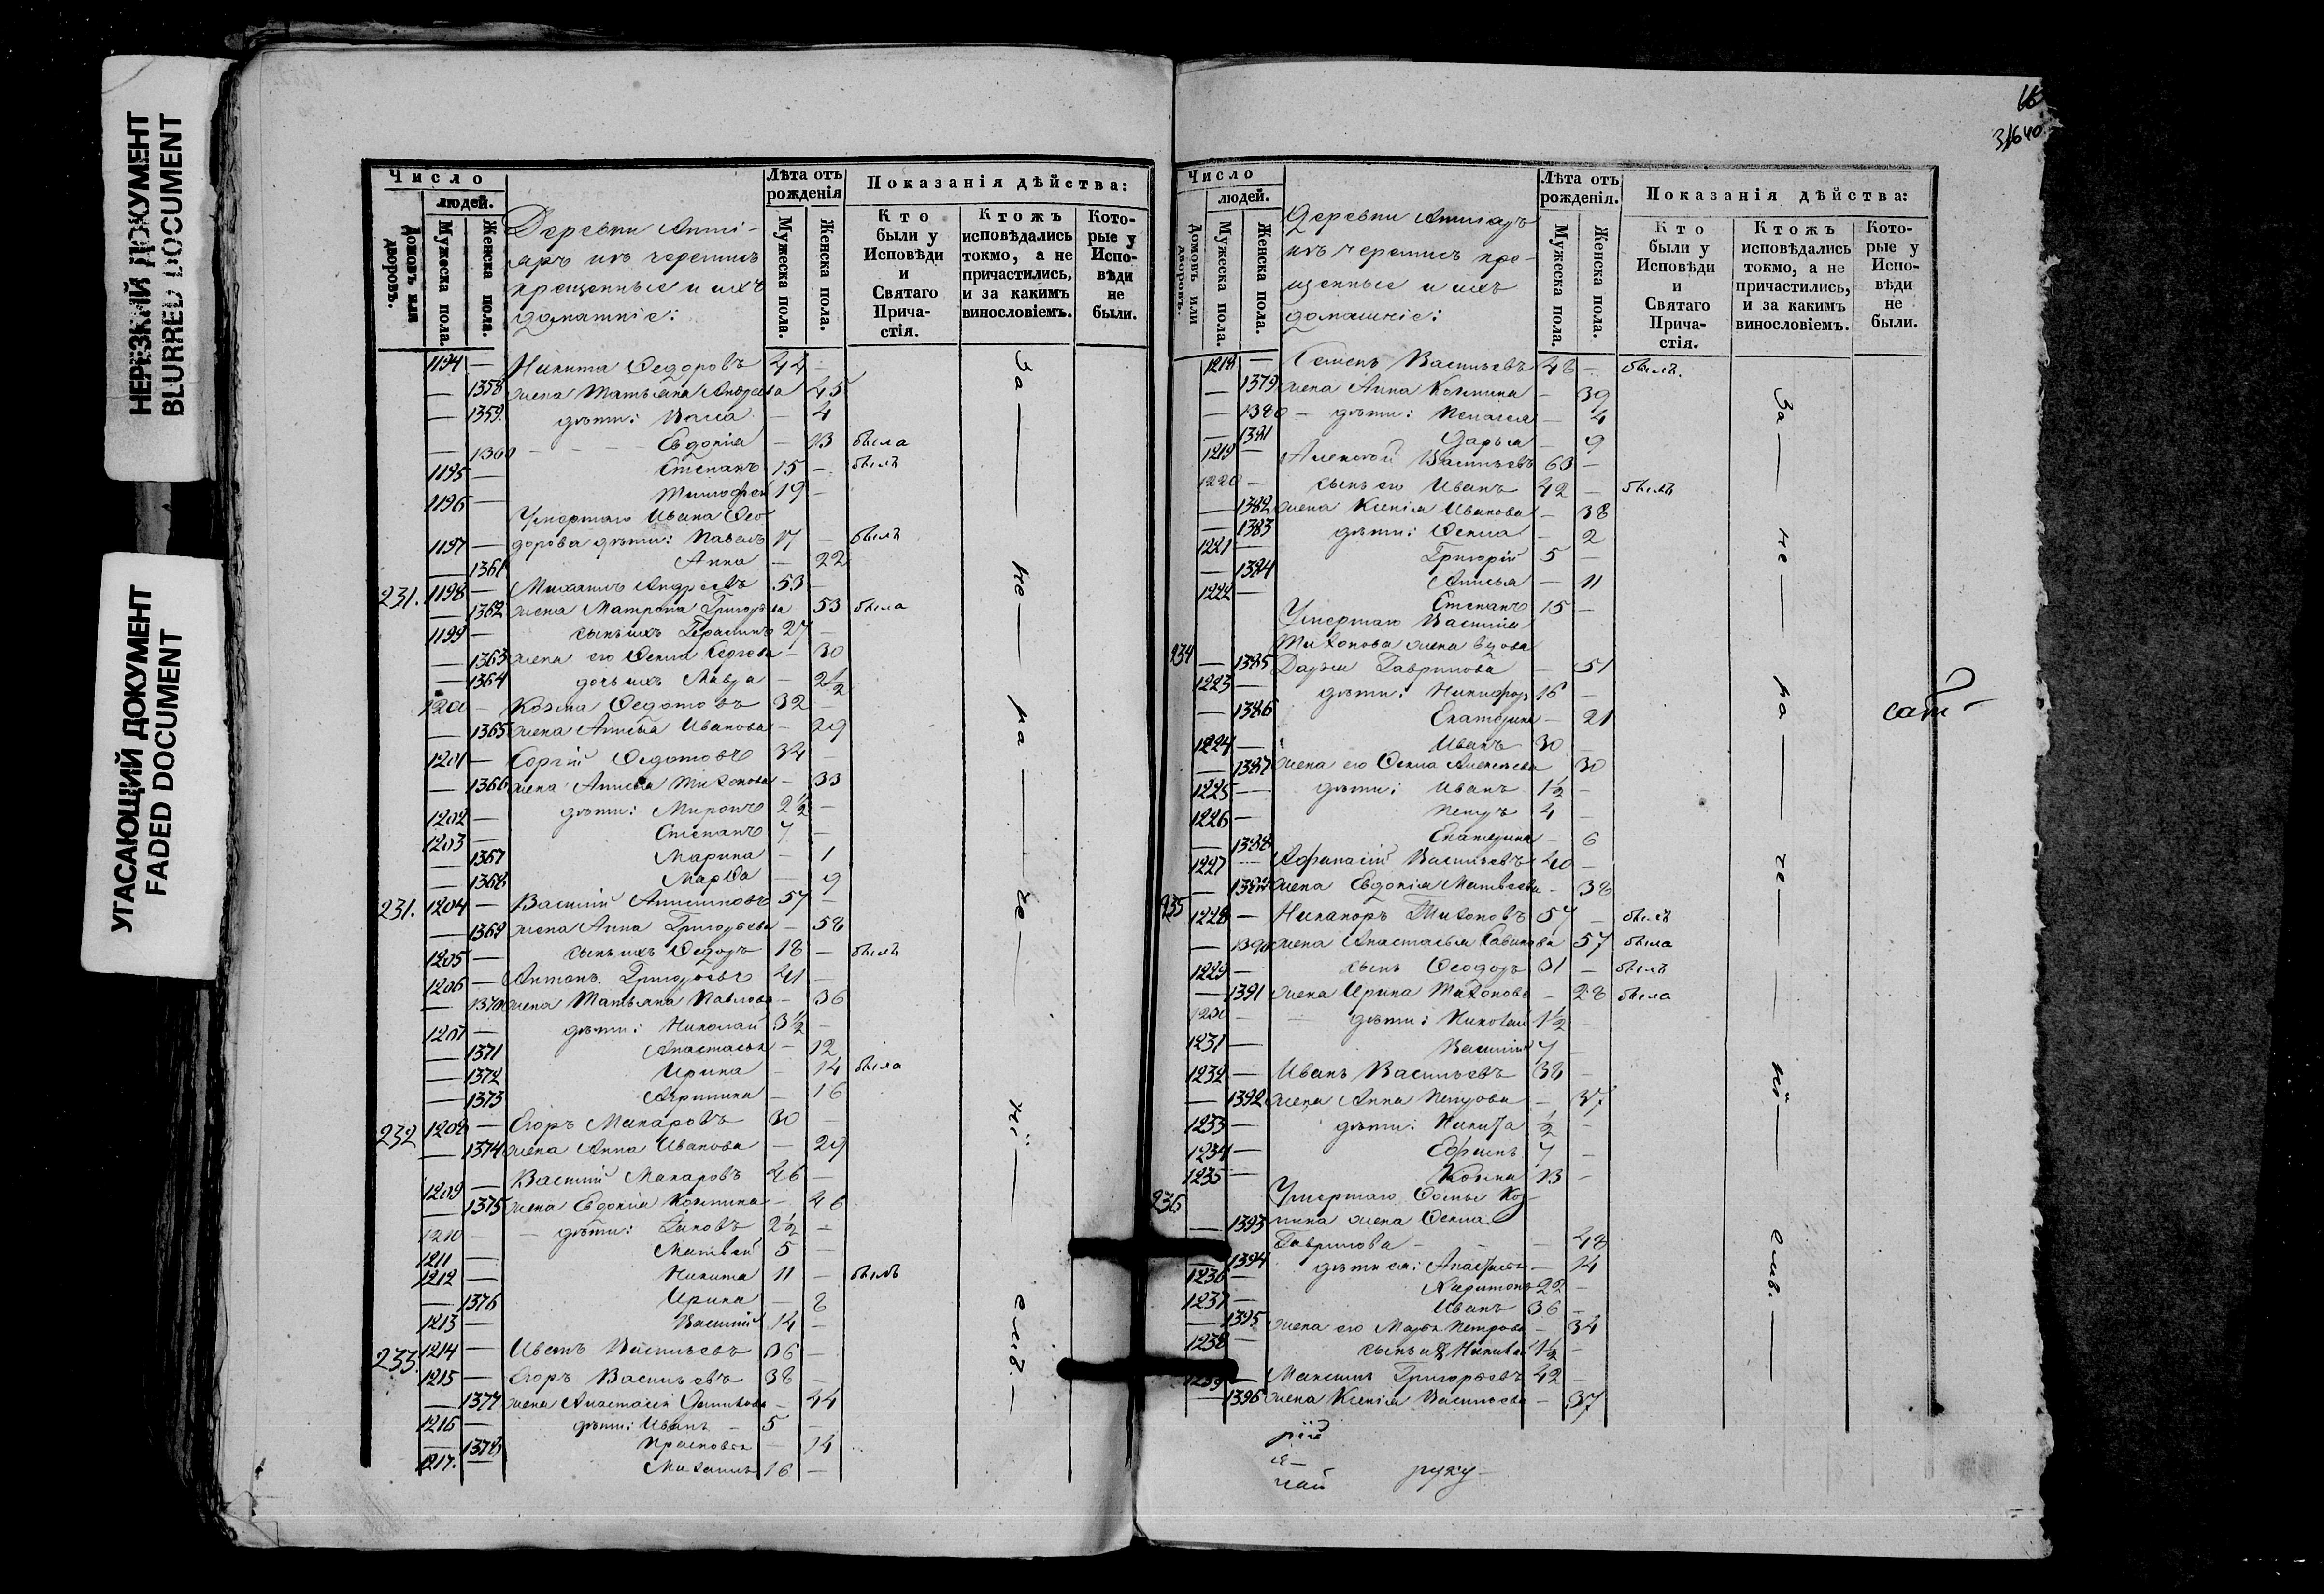 НЕРЕЗКИЙ ДОКУМЕНТ
BLURRED DOCUMENT
УГАСАЮЩИЙ ДОКУМЕНТ
FADED DOCUMENT
Число
людей.
Домовъ или дворовъ.
Мужеска пола.
Женска пола.
Деревни
изъ черемисъ
крещенные и ихъ
домашніе:
Лѣта отъ рожденія
Мужеска пола.
Женска пола.
Показанія дѣйства:
Кто были у Исповѣди и Святаго Причастія.
Ктожъ исповѣдались токмо, а не причастились, и за какимъ винословіемъ.
Которые у Исповѣди не были.
1194 — Никита Ѳедоровъ 44 —
— 1358 жена Татьяна Андреева 45
— 1359 дѣти: Васса — 4
— 1360 Евдокія — 13 была
1195 — Степанъ 15 — былъ
1196 — Тимофей 19 —
Умершаго Ивана Ѳео-
1197 — дорова дѣти: Павелъ 17 — былъ
— 1361 Анна — 22
231. 1198 — Михаилъ Андреевъ 53 —
— 1362 жена Матрона Григорьева 53 была
1199 — сынъ ихъ Герасимъ 27 —
— 1363 жена его Ѳекла Сергеева — 30
— 1364 дочь ихъ Мавра — 2½
1200 — Козма Ѳедотовъ 32 —
— 1365 жена Анисья Иванова — 29
1201 — Сергій Ѳедотовъ 34 —
— 1366 жена Анисья Тихонова — 33
1202 — дѣти: Миронъ 2½ —
1203 — Степанъ 7 —
— 1367 Марина — 1
— 1368 Марѳа — 9
231. 1204 — Василій 57 —
— 1369 жена Анна Григорьева — 58
1205 — сынъ ихъ Ѳедоръ 18 — былъ
1206 — Антонъ Григорьевъ 41 —
— 1370 жена Татьяна Павлова — 36
1207 — дѣти: Николай 3½ —
— 1371 Анастасія — 12
— 1372 Ирина — 14 была
— 1373 — 16
232 1208 — Егоръ Макаровъ 30 —
— 1374 жена Анна Иванова — 29
1209 — Василій Макаровъ 46 —
— 1375 жена Евдокія Козмина — 46
1210 — дѣти: Яковъ 2½ —
1211 — Матвей 5 —
1212 — Никита 11 — былъ
— 1376 Ирина — 8
1213 — Василій 14 —
233. 1214 — Иванъ Васильевъ 36 —
1215 — Егоръ Васильевъ 38 —
— 1377 жена Анастасія — 44
1216 — дѣти: Иванъ — 5 —
— 1378 Прасковья — 14
1217. — Михаилъ 16 —
За — не — ра — че — ні — емъ. —
31640
Число
людей.
Домовъ или дворовъ.
Мужеска пола.
Женска пола.
Деревни
изъ черемисъ кре-
щенные и ихъ
домашніе:
Лѣта отъ рожденія.
Мужеска пола.
Женска пола.
Показанія дѣйства:
Кто были у Исповѣди и Святаго Причастія.
Ктожъ исповѣдались токмо, а не причастились, и за какимъ винословіемъ.
Которые у Исповѣди не были.
1218 — Семенъ Васильевъ 48 — былъ.
— 1379 жена Анна Козмина — 39
— 1380 — дѣти: Пелагея — 4
— 1381 Дарья — 9
1219 — Алексей Васильевъ 63 —
1220 — сынъ его Иванъ 42 — былъ
— 1382 жена Ксенія Иванова — 38
— 1383 дѣти: Ѳекла — 2
1221 — Григорій 5 —
— 1384 Анисья — 11
1222 — Степанъ 15 —
Умершаго Василія
Тихонова жена вдова
234 — 1385 Дарья Гаврилова — 51
1223 — дѣти: Никифоръ 16 —
— 1386 Екатерина — 21
1224 — Иванъ 30 —
— 1387 жена его Ѳекла Алексеева 30
1225 — дѣти: Иванъ 1½ —
1226 — Петръ 4 —
— 1388 Екатерина — 6
1227 — Афанасій Васильевъ 40 —
— 1389 жена Евдокія Матвеева — 38
235 1228 — Никаноръ Тихоновъ 57 — былъ
— 1390 жена Анастасья Савинова 57 была
1229 — сынъ Ѳеодоръ 31 — былъ
— 1391 жена Ирина Тихонова — 28 была
1230 — дѣти: Николай 1½ —
1231 — Василій 7 —
1232 — Иванъ Васильевъ 38 —
— 1392 жена Анна Петрова — 37
1233 — дѣти: Никита ½ —
1234 — Ефремъ 7 —
1235 — Козма 13 —
236 Умершаго Ѳомы Коз-
— 1393 мина жена Ѳекла
Гаврилова — — 48
— 1394 дѣти ея: — 14
1236 — Харитонъ 22 —
1237 — Иванъ 36 —
— 1395 жена его Марья Петрова — 34
1238 — сынъ их 1½ —
1239 — Максимъ Григорьевъ 42 —
— 1396 жена Ксенія Васильева — 37
За — не — ра — че — ні — емъ. —